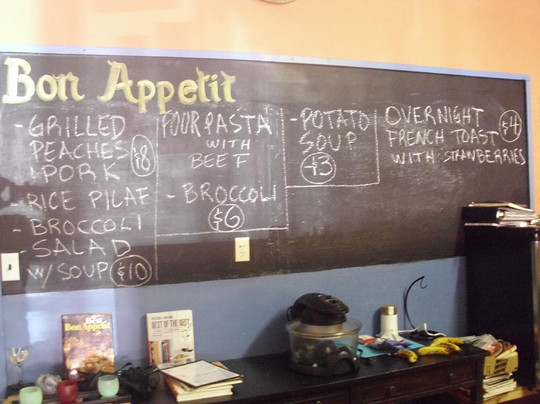 Bon Appetit
- GRILLED
PEACHES
& PORK $8
- RICE PILAF
- BROCCOLI
- SALAD
W/ SOUP $10
FOUR PASTA
WITH
BEEF
- BROCCOLI
$6
- POTATO
SOUP
$3
OVERNIGHT $4
FRENCH TOAST
WITH STRAWBERRIES
Best
Bon Appétit
BEST OF THE BEST